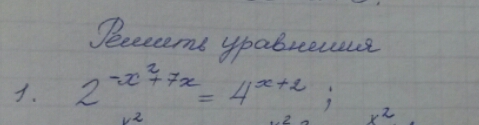 Решить уравнения
1. 2^{-x^2+7x} = 4^{x+2};